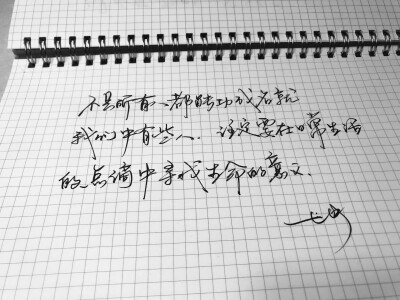 不是所有人都能功成名就
我们中有些人，注定要在日常生活
的点滴中寻找生命的意义．